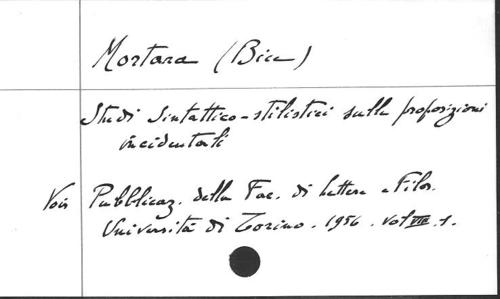 Mortara (Bice)
Studi sintattico-stilistici sulle proposizioni
incidentali
Voir Pubblicaz. della Fac. di Lettere e Filos.
Università di Torino. 1956. vol VIII. 1.